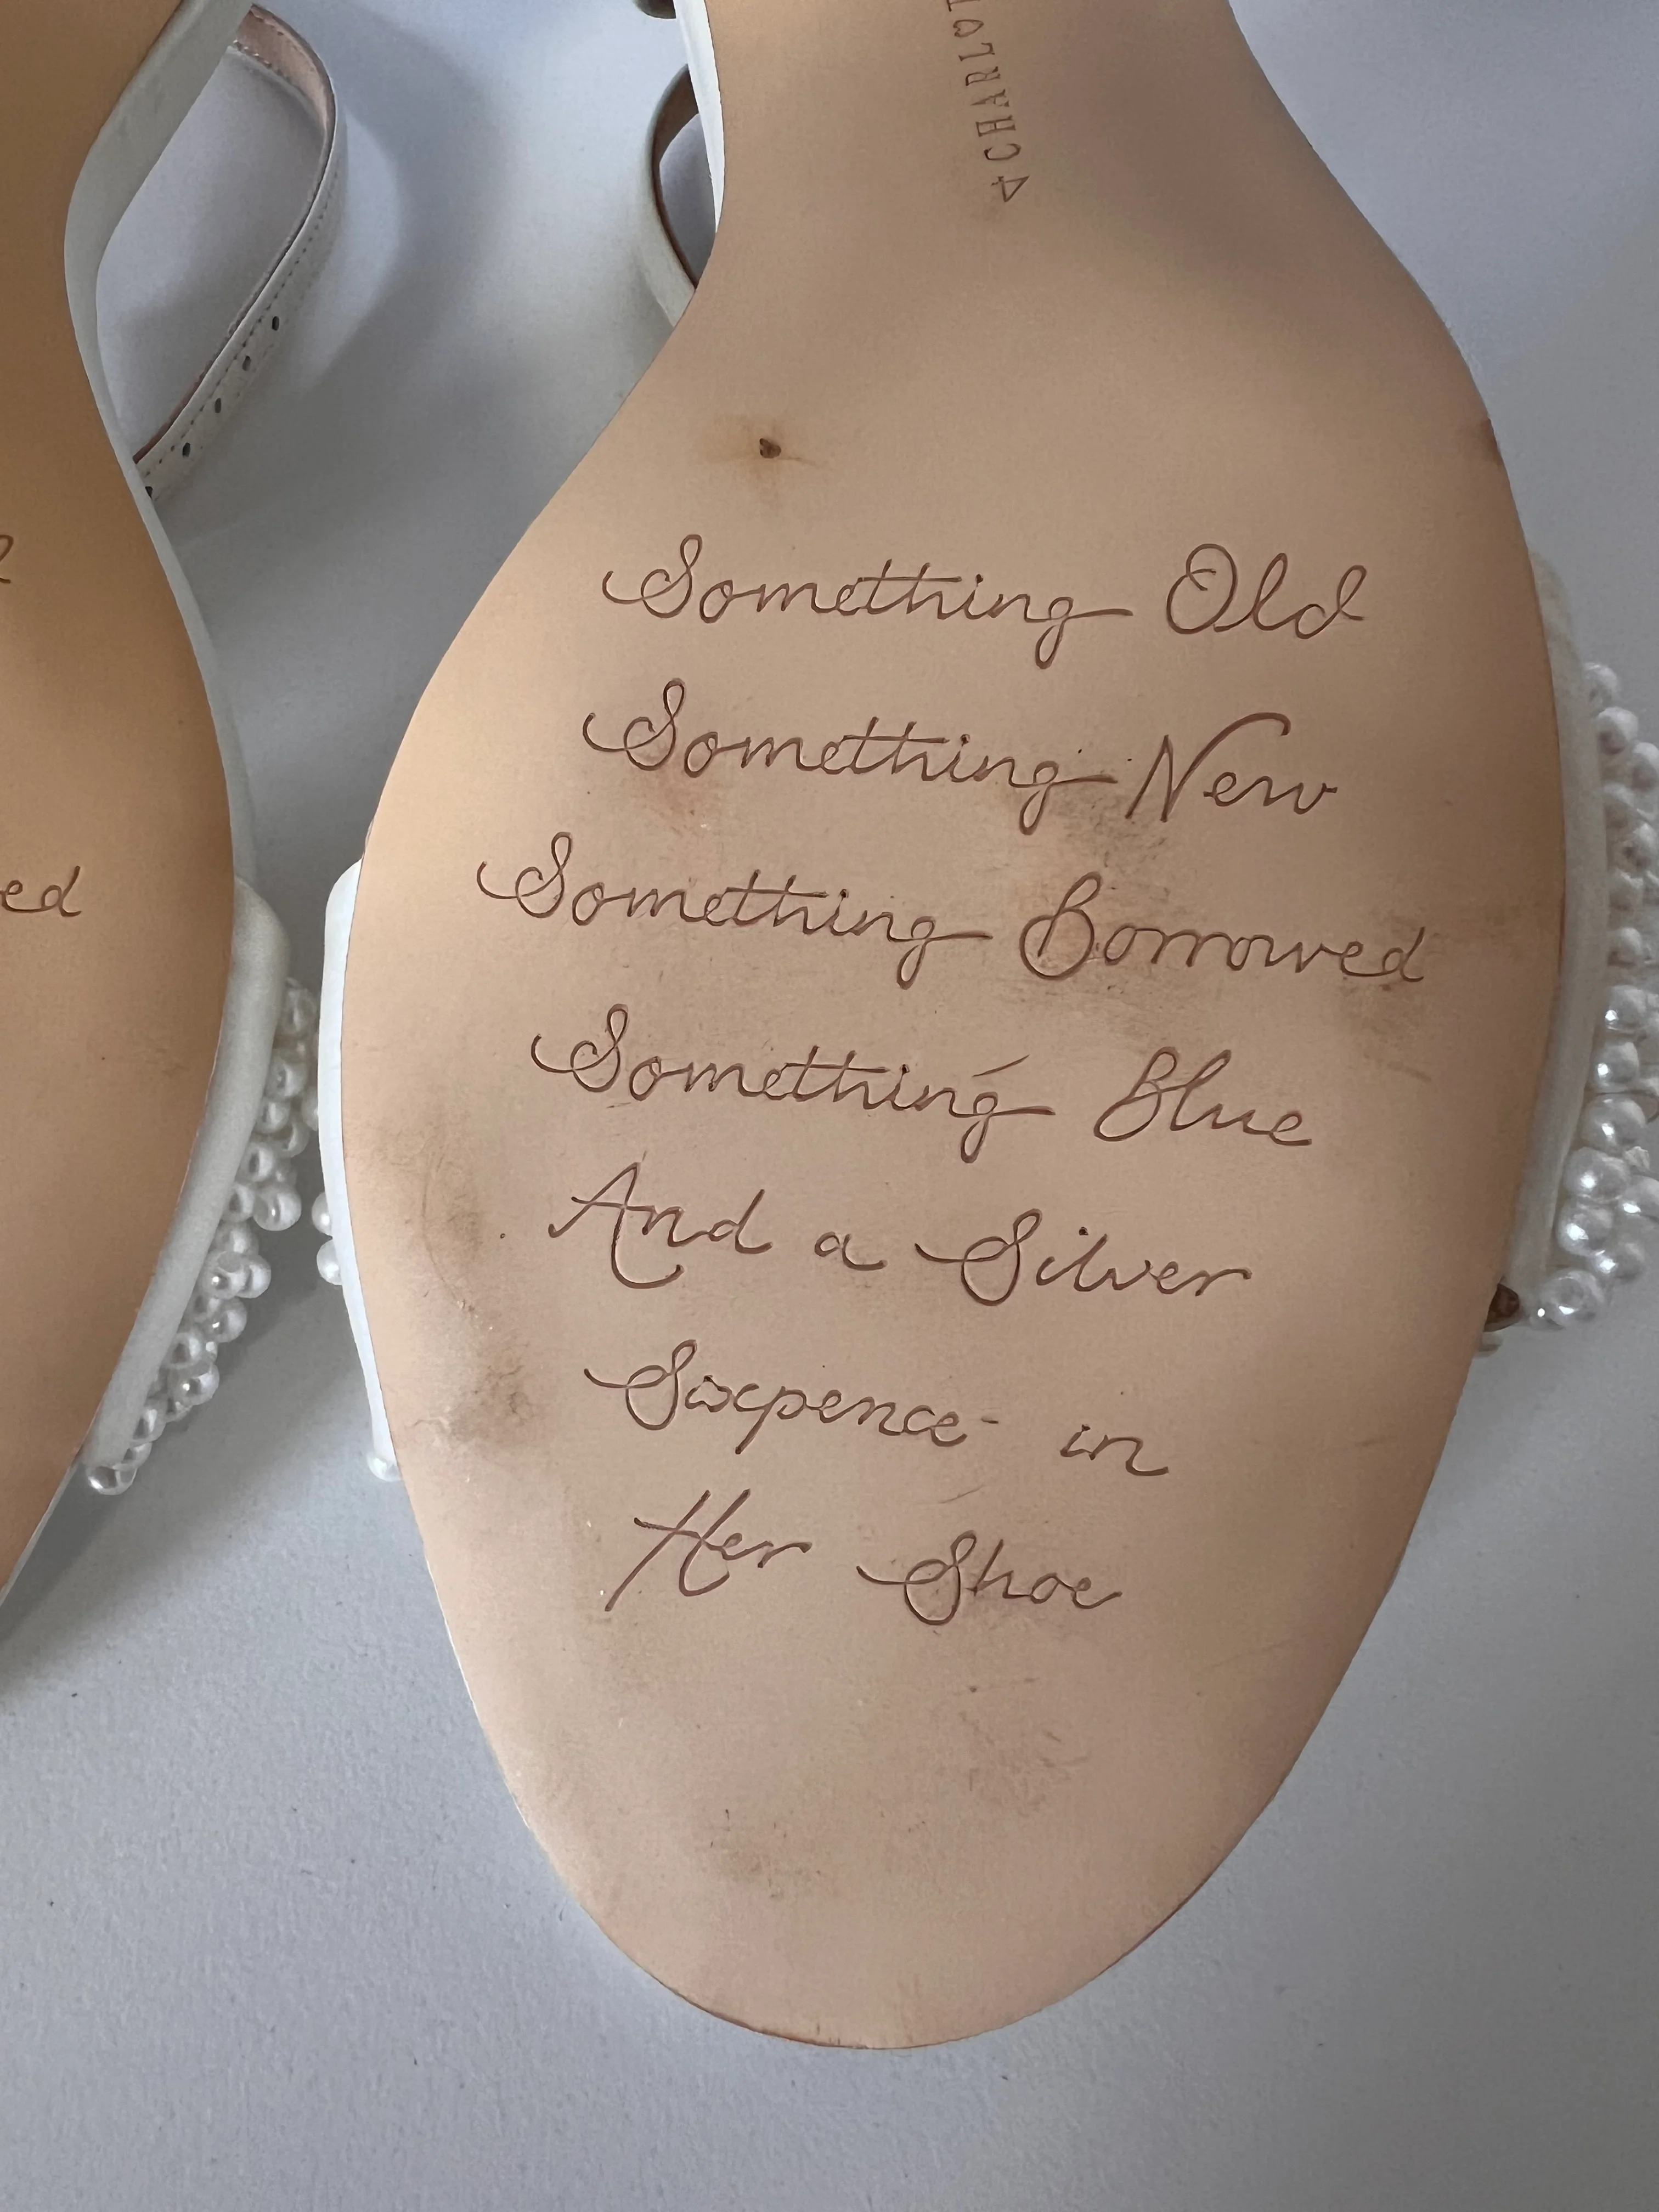 CHARLOT
Something Old
Something New
Something Borrowed
Something Blue
And a Silver
Sixpence in
Her Shoe
ed